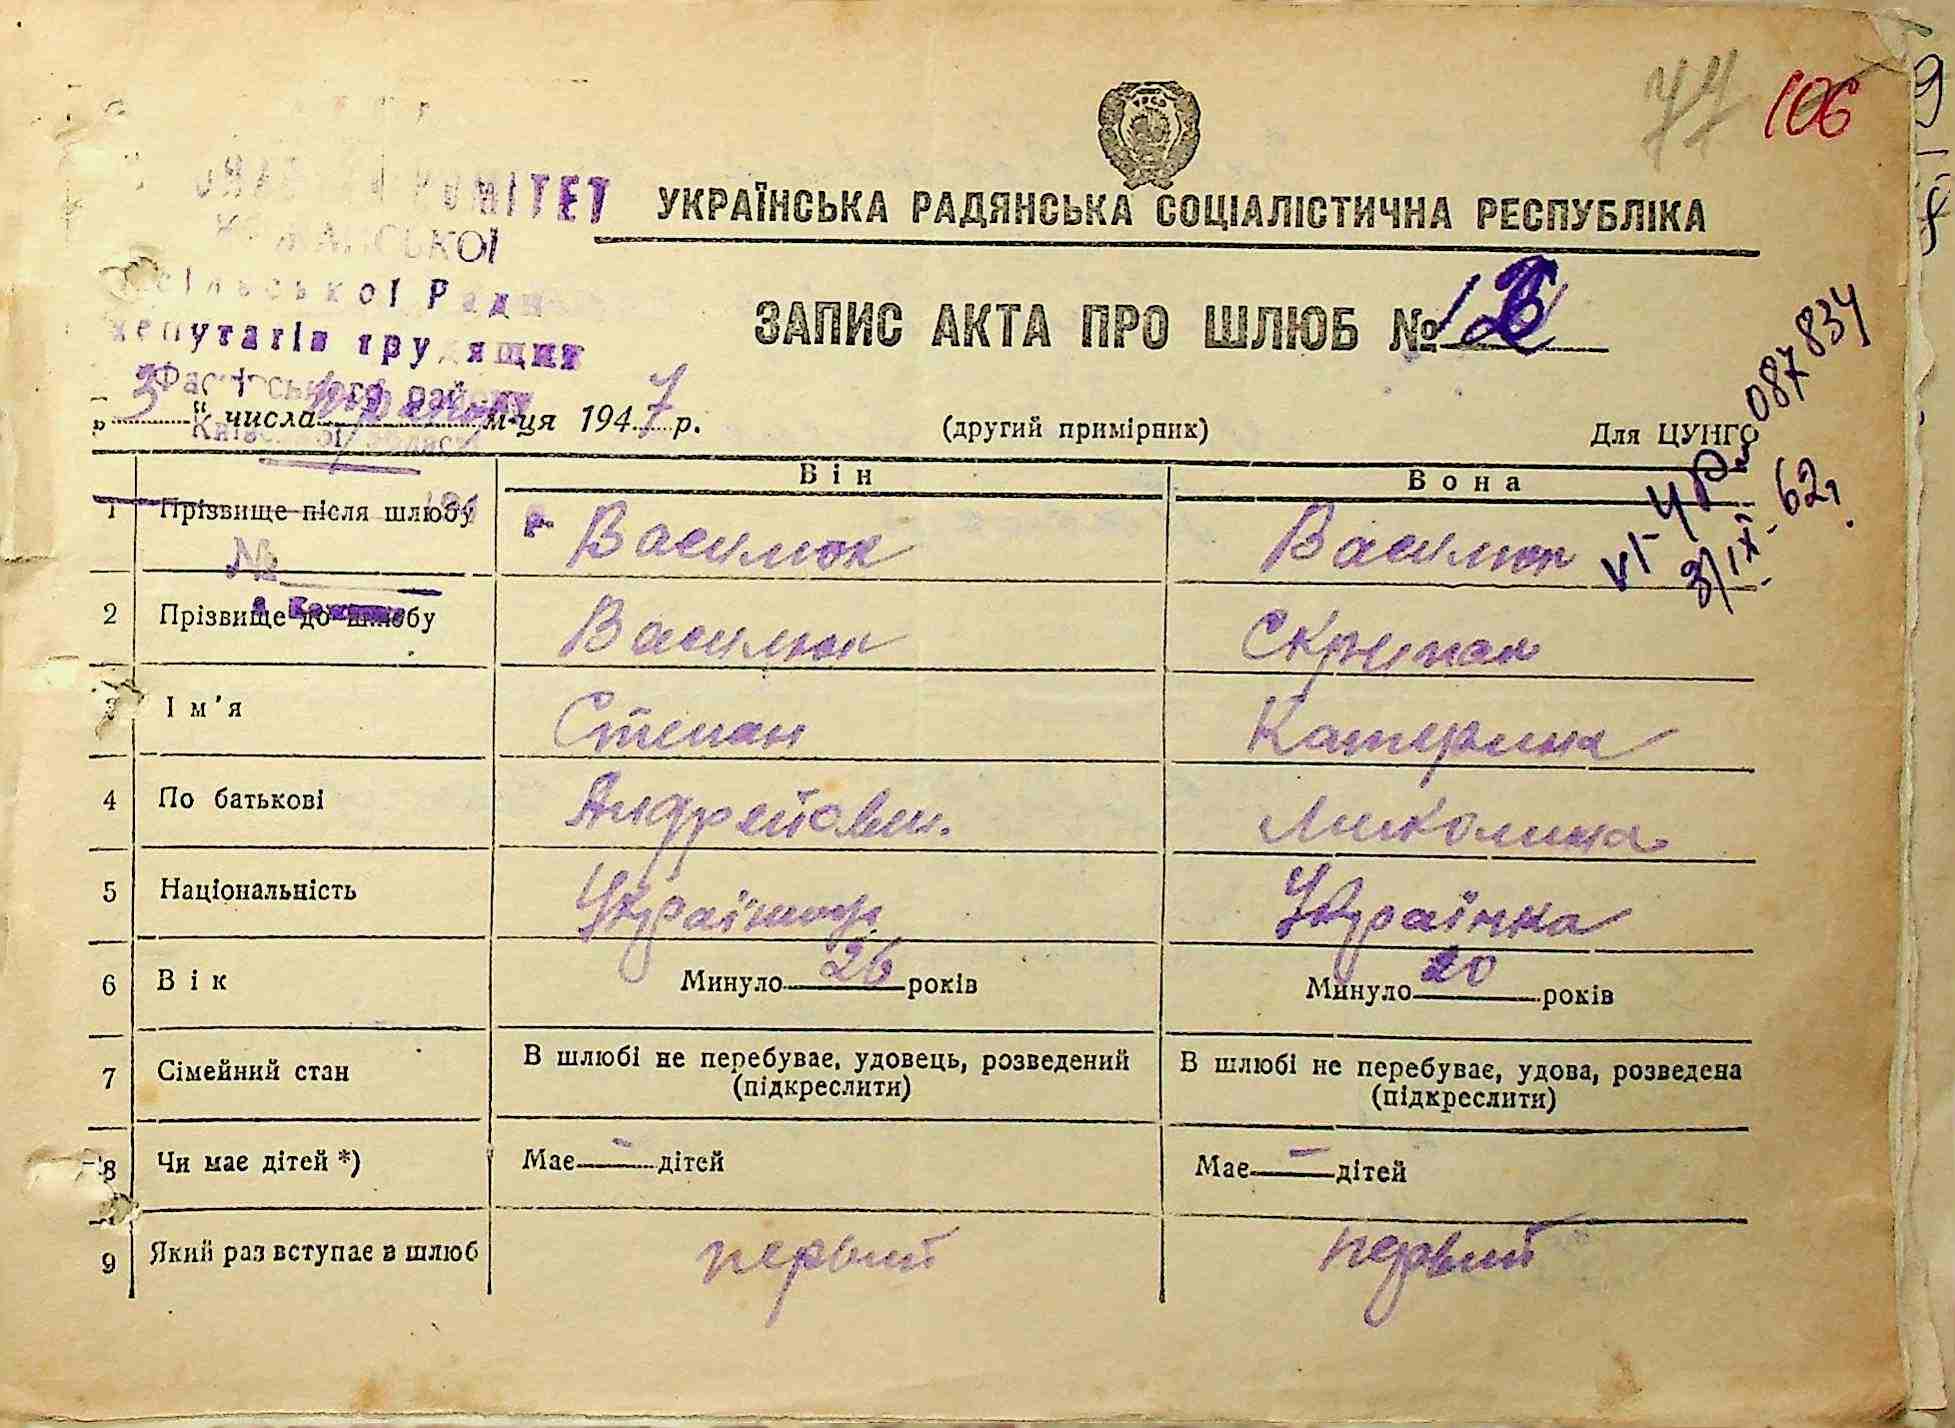 77 106
КОМІТЕТ
УКРАЇНСЬКА РАДЯНСЬКА СОЦІАЛІСТИЧНА РЕСПУБЛІКА
сільської Ради
депутатів трудящих
ЗАПИС АКТА ПРО ШЛЮБ №
„3" числа м-ця 1947 р.
(другий примірник)
Для ЦУНГО
087834
VI-УР
3/IX-62
Він Вона
1 Прізвище після шлюбу Василюк Василюк
№
2 Прізвище до шлюбу Василюк Скрипак
3 Ім'я Степан Катерина
4 По батькові Андрейович. Миколина
5 Національність Українець Українка
6 Вік Минуло 26 років Минуло 20 років
7 Сімейний стан В шлюбі не перебуває, удовець, розведений (підкреслити) В шлюбі не перебуває, удова, розведена (підкреслити)
8 Чи має дітей *) Має - дітей Має - дітей
9 Який раз вступає в шлюб первый первый